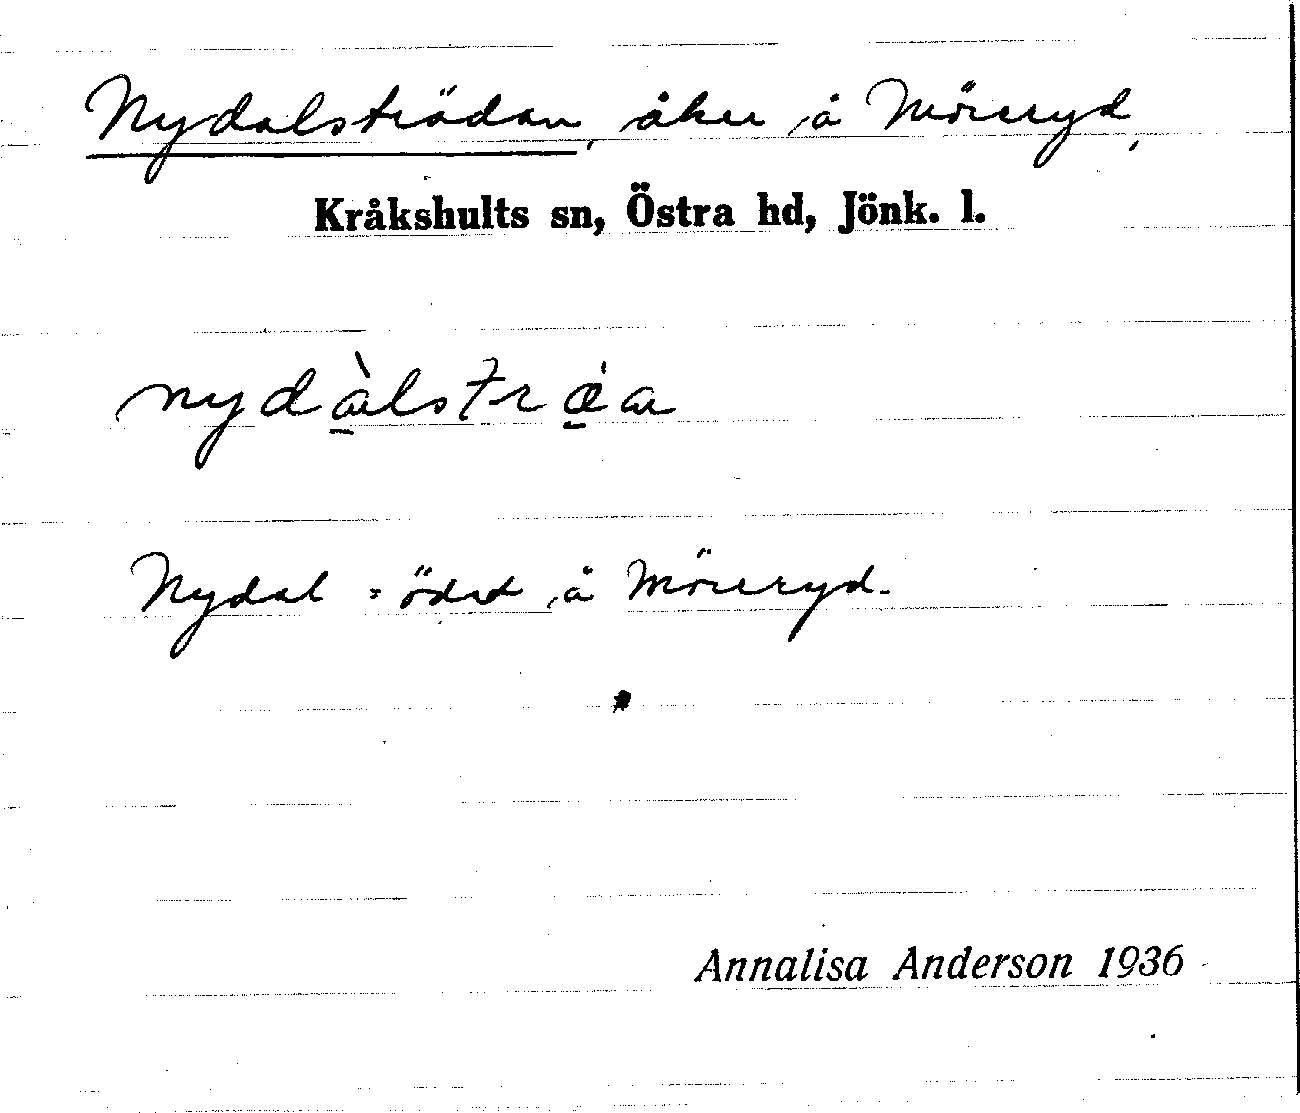 Nydalsträdan, åker å Möreryd,
Kråkshults sn, Östra hd, Jönk. l.
nydàlstrǽa
Nydal = ödet å Möreryd.
Annalisa Anderson 1936